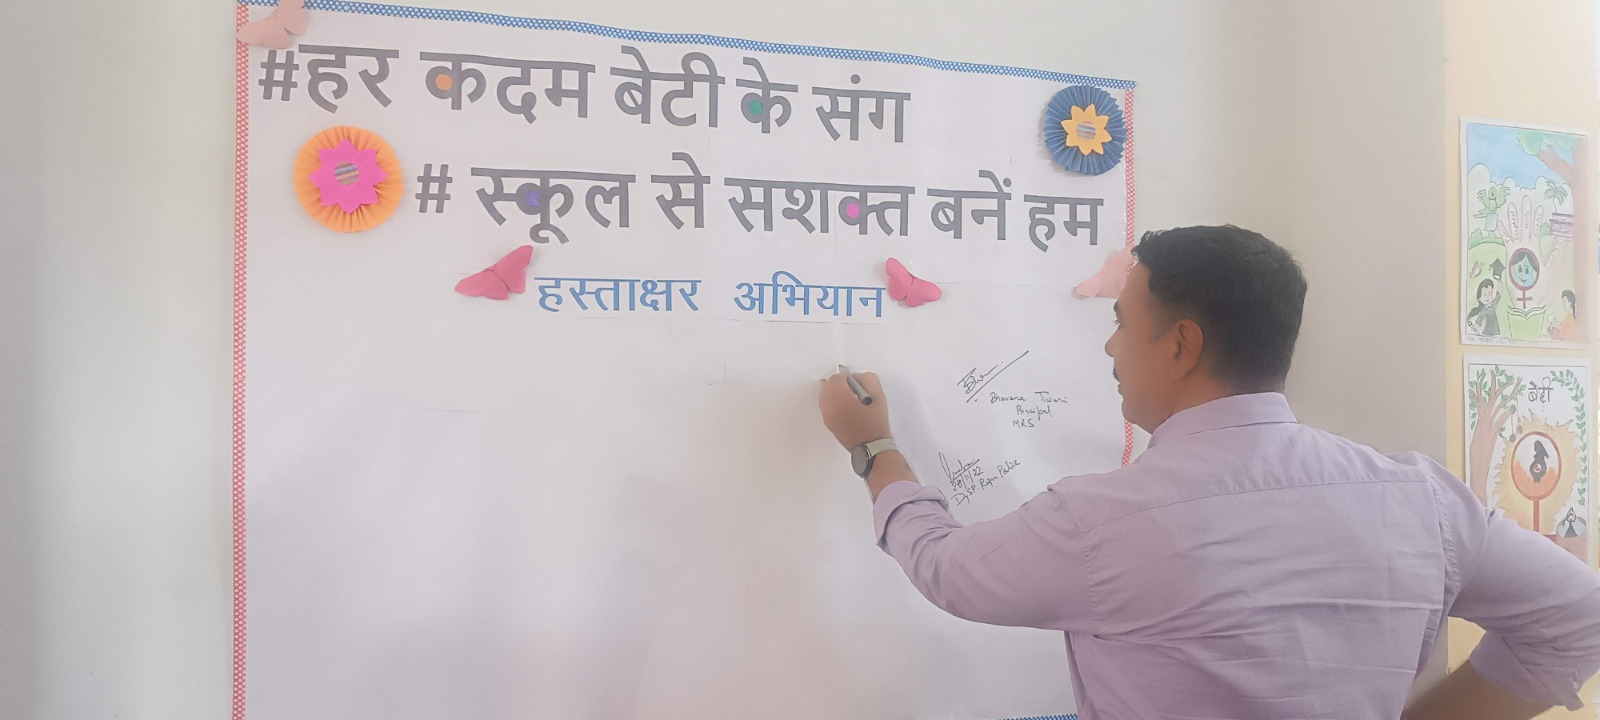 #हर कदम बेटी के संग
# स्कूल से सशक्त बनें हम
हस्ताक्षर अभियान
Bhavana Tiwari
Principal
MRS
28/11/22
DySP. Raj. Police
बेटी